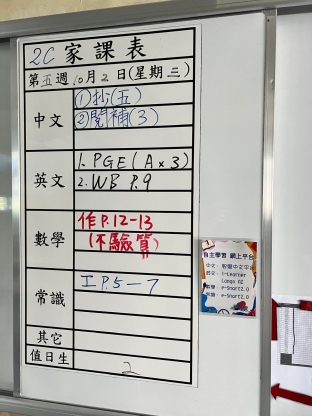 2C 家課表
第五週 10月2日(星期三)
中文
①抄(五)
②閱補(3)
英文
1. PGE (A×3)
2. WB P.9
數學
作 P.12-13
(不驗算)
常識
工 P.5-7
其它
值日生
2
自主學習 網上平台
i-Learner
e-Smart2.0
e-Smart2.0